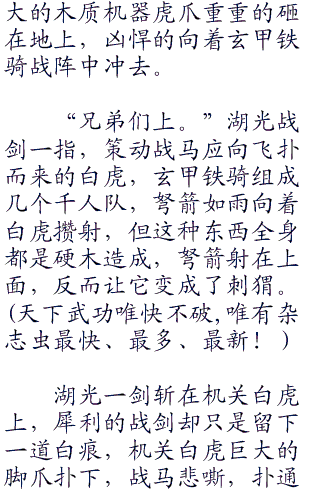 大的木质机器虎爪重重的砸
在地上，凶悍的向着玄甲铁
骑战阵中冲去。
“兄弟们上。”湖光战
剑一指，策动战马应向飞扑
而来的白虎，玄甲铁骑组成
几个千人队，弩箭如雨向着
白虎攒射，但这种东西全身
都是硬木造成，弩箭射在上
面，反而让它变成了刺猬。
(天下武功唯快不破,唯有杂
志虫最快、最多、最新！)
湖光一剑斩在机关白虎
上，犀利的战剑却只是留下
一道白痕，机关白虎巨大的
脚爪扑下，战马悲嘶，扑通